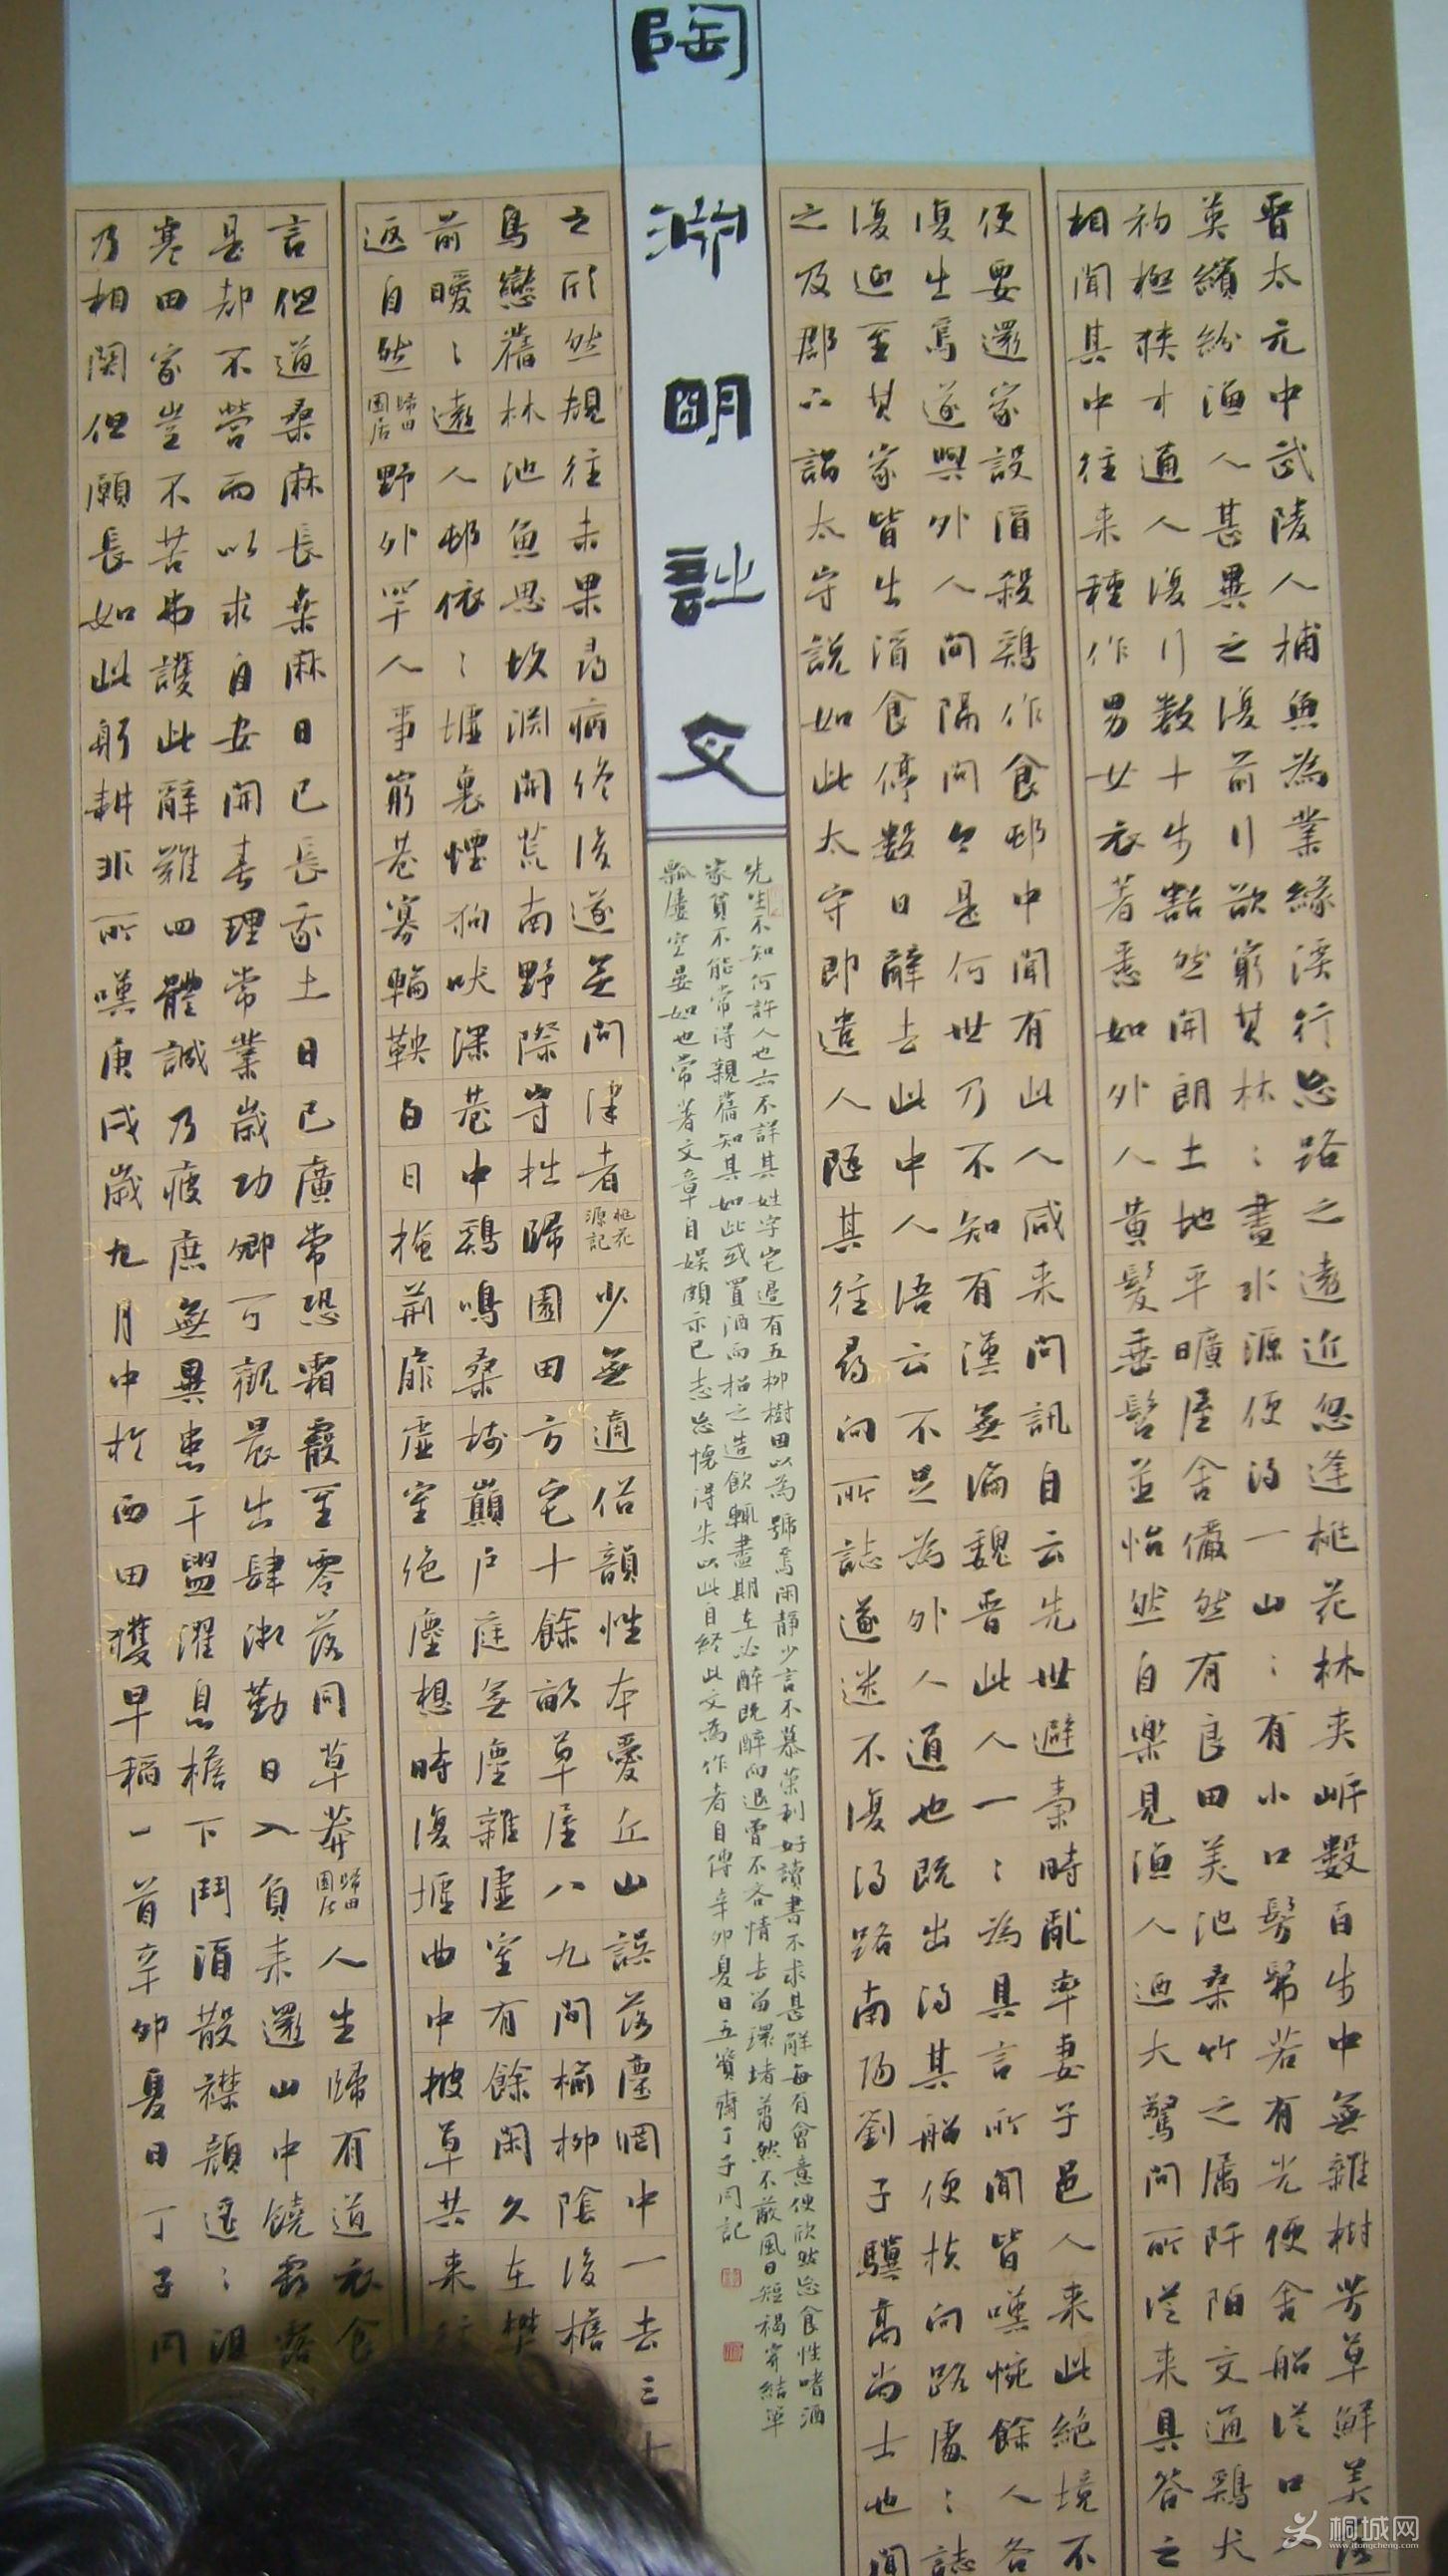 晋太元中武陵人捕魚為業緣溪行忘路之遠近忽逢桃花林夾岸數百步中無雜樹芳草鮮美落
英繽紛漁人甚異之復前行欲窮其林〻盡水源便得一山〻有小口髣髴若有光便舍船從口
初極狹才通人復行數十步豁然開朗土地平曠屋舍儼然有良田美池桑竹之属阡陌交通鷄犬
相聞其中往来種作男女衣著悉如外人黃髮垂髫並怡然自樂見漁人迺大驚問所從来具答之
便要還家設酒殺鷄作食邨中聞有此人咸来問訊自云先世避秦時亂率妻子邑人来此絕境不
復出焉遂與外人間隔問今是何世乃不知有漢無論魏晋此人一〻為具言所聞皆嘆惋餘人各
復延至其家皆出酒食停數日辭去此中人語云不足為外人道也既出得其船便扶向路處〻誌
之及郡下詣太守說如此太守即遣人隨其往尋向所誌遂迷不復得路南陽劉子驥高尚士也聞
陶淵明詩文
先生不知何許人也亦不詳其姓字宅邊有五柳樹因以為號焉閑靜少言不慕榮利好讀書不求甚解每有會意便欣然忘食性嗜酒
家貧不能常得親舊知其如此或置酒而招之造飲輒盡期在必醉既醉而退曾不吝情去留環堵蕭然不蔽風日短褐穿結箪
瓢屢空晏如也常著文章自娛頗示己志忘懷得失以此自終此文為作者自傳辛卯夏日五賓齋丁子同記
之欣然規往未果尋病終後遂無問津者桃花源記少無適俗韻性本愛丘山誤落塵網中一去三十
鳥戀舊林池魚思故淵開荒南野際守拙歸園田方宅十餘畝草屋八九間榆柳陰後檐
前曖〻遠人邨依〻墟裏煙狗吠深巷中鷄鳴桑樹巔户庭無塵雜虛室有餘閑久在樊
返自然歸田園居野外罕人事窮巷寡輪鞅白日掩荆扉虛室絕塵想時復墟曲中披草共来往
言但道桑麻長桑麻日已長我土日已廣常恐霜霰至零落同草莽歸田園居人生歸有道衣食
是都不營而以求自安開春理常業歲功聊可觀晨出肆微勤日入負耒還山中饒霜露
寒田家豈不苦弗獲此辭難四體誠乃疲庶無異患干盥濯息檐下鬥酒散襟顏遥〻沮
乃相關但願長如此躬耕非所嘆庚戌歲九月中於西田獲早稻一首辛卯夏日丁子同
桐城网
www.itongcheng.com